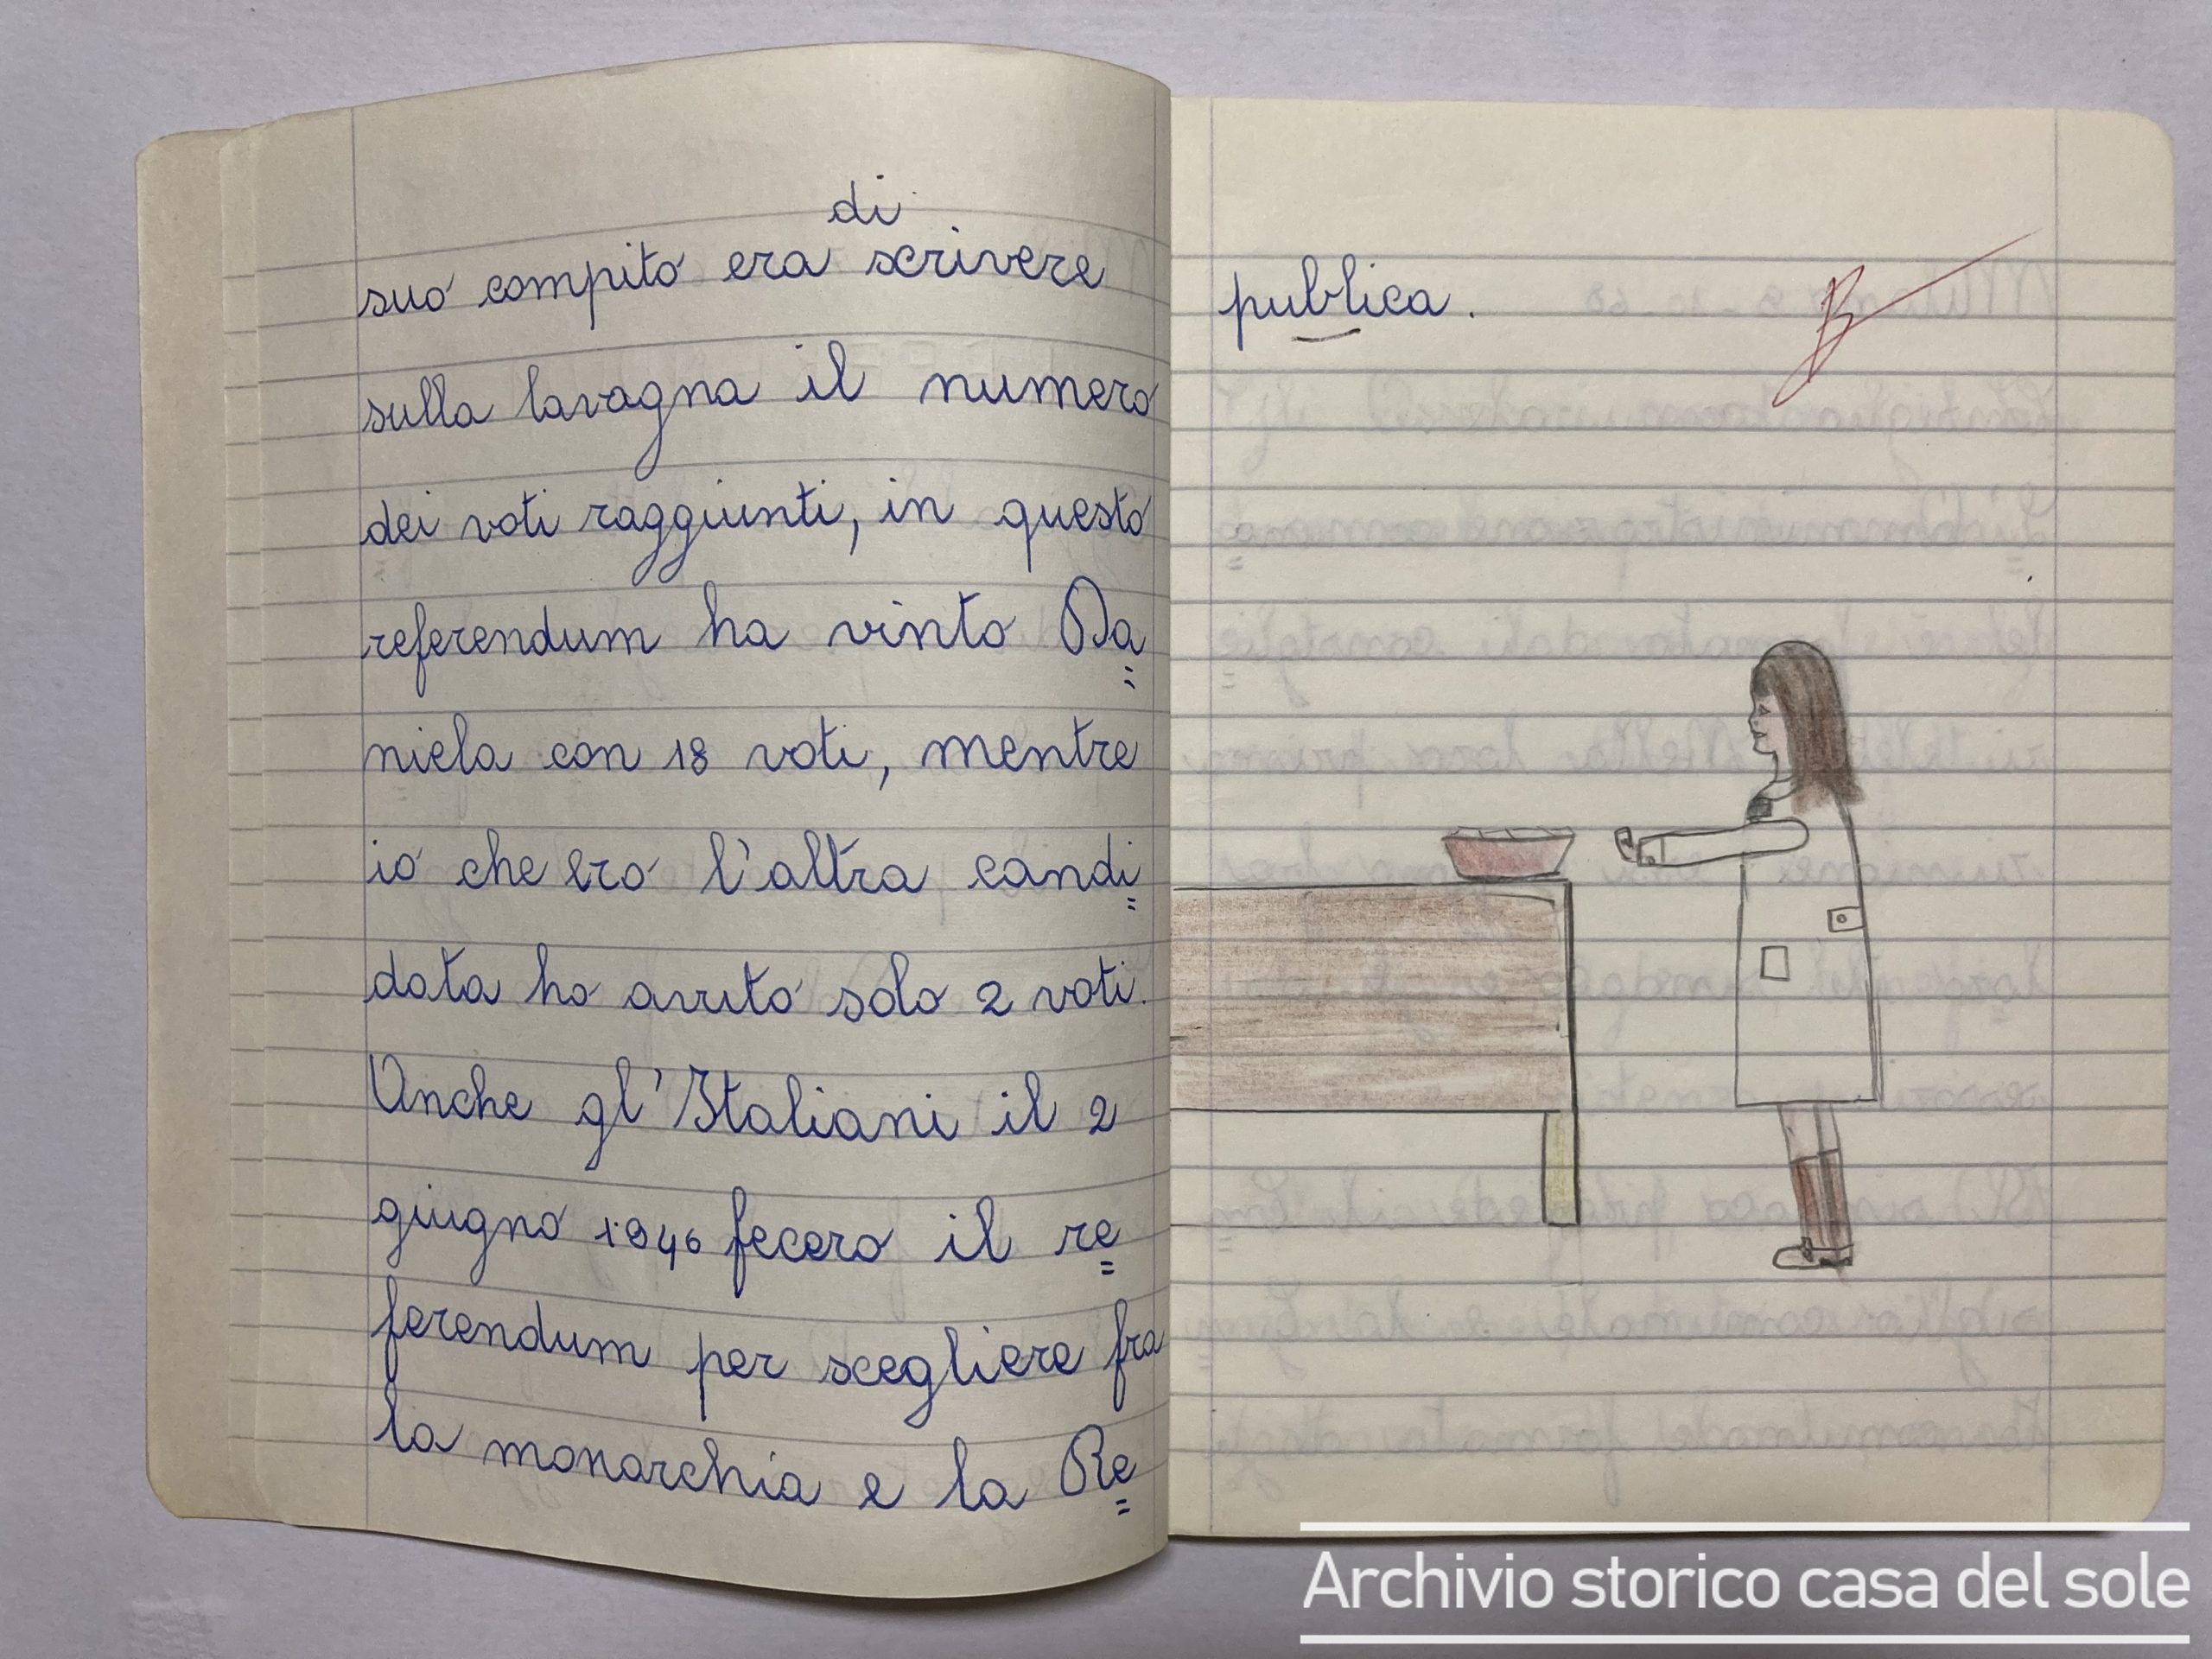 di
suo compito era scrivere
sulla lavagna il numero
dei voti raggiunti, in questo
referendum ha vinto Da
niela con 18 voti, mentre
io che ero l'altra candi
data ho avuto solo 2 voti.
Anche gl'Italiani il 2
giugno 1946 fecero il re
ferendum per scegliere fra
la monarchia e la Re
publica.
B
Archivio storico casa del sole